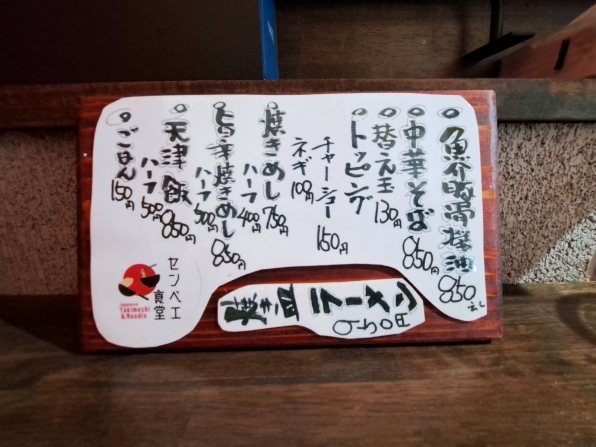 魚介豚骨醤油 850円
中華そば 850円
替え玉 130円
トッピング
チャーシュー 150円
ネギ 100円
焼きめし 750円
ハーフ 400円
旨辛焼きめし 850円
ハーフ 500円
天津飯 850円
ハーフ 500円
ごはん 150円
センベエ
食堂
Yakimeshi
& Noodle
ラーメン